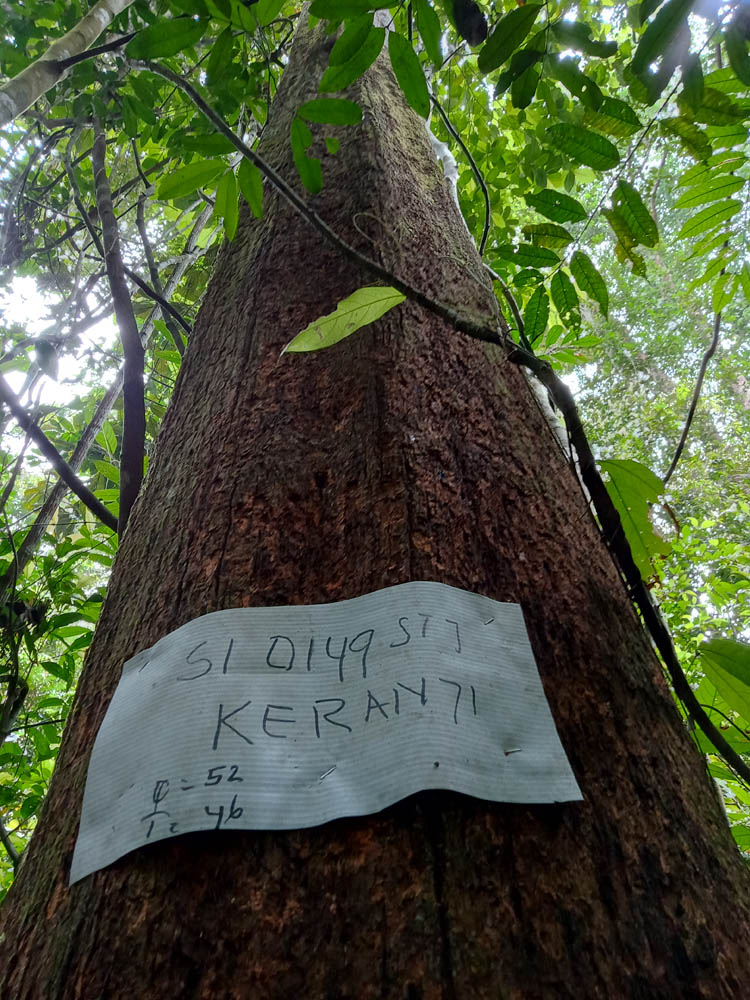 SI 0149 STJ
KERANTI
φ = 52
T = 46